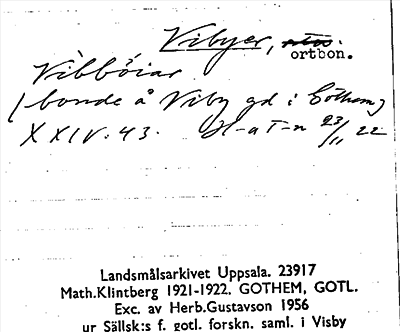 Vibyer, ortbon.
Vibböiar
(bonde å Viby gd i Gothem)
XXIV. 43. H-a T-n 23/11 22
Landsmålsarkivet Uppsala. 23917
Math.Klintberg 1921-1922. GOTHEM, GOTL.
Exc. av Herb.Gustavson 1956
ur Sällsk:s f. gotl. forskn. saml. i Visby